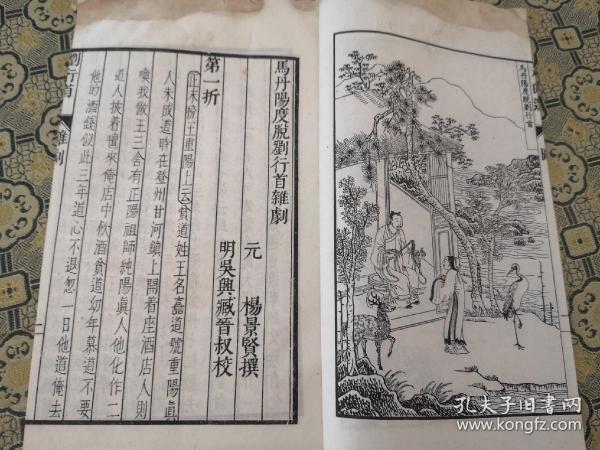 馬丹陽度脫劉行首
馬丹陽度脫劉行首雜劇
元 楊景賢撰
明吳興臧晉叔校
第一折
正末粉王重陽上云貧道姓王名嚞道號重陽眞
人未成道時在登州甘河鎮上開着座酒店人則
喚我做王三舍有正陽祖師純陽眞人他化作二
道人披着氊來俺店中飮酒貧道幼年慕道不要
他的酒錢似此三年道心不退忽一日他道俺去
劉行首
雜劇
一
孔夫子旧书网
www.kongfz.com